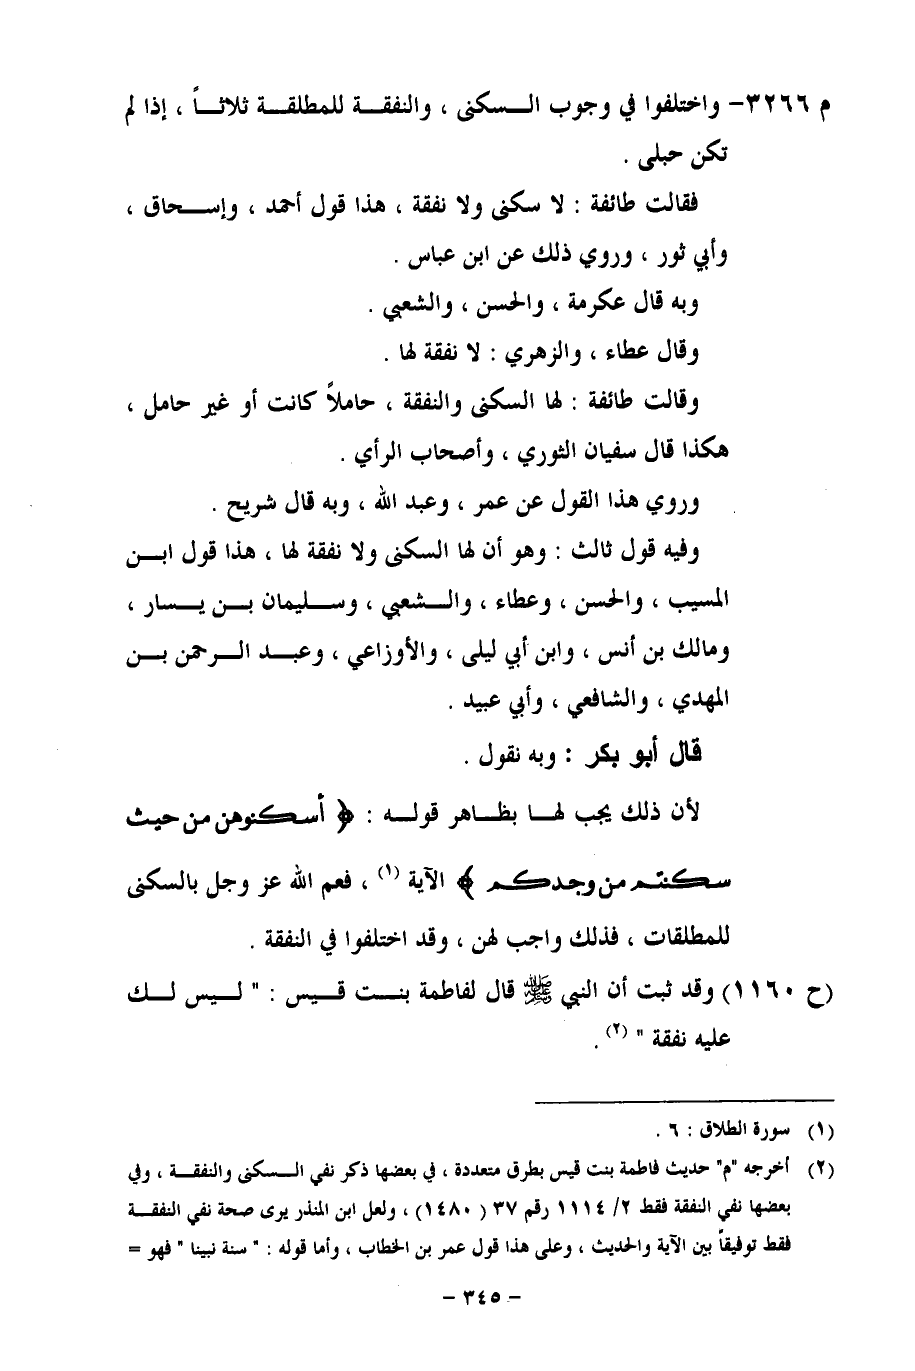 م ٣٢٦٦- واختلفوا في وجوب السكنى ، والنفقة للمطلقة ثلاثاً ، إذا لم
تكن حبلى .
فقالت طائفة : لا سكنى ولا نفقة ، هذا قول أحمد ، وإسحاق ،
وأبي ثور ، وروي ذلك عن ابن عباس .
وبه قال عكرمة ، والحسن ، والشعبي .
وقال عطاء ، والزهري : لا نفقة لها .
وقالت طائفة : لها السكنى والنفقة ، حاملاً كانت أو غير حامل ،
هكذا قال سفيان الثوري ، وأصحاب الرأي .
وروي هذا القول عن عمر ، وعبد الله ، وبه قال شريح .
وفيه قول ثالث : وهو أن لها السكنى ولا نفقة لها ، هذا قول ابن
المسيب ، والحسن ، وعطاء ، والشعبي ، وسليمان بن يسار ،
ومالك بن أنس ، وابن أبي ليلى ، والأوزاعي ، وعبد الرحمن بن
المهدي ، والشافعي ، وأبي عبيد .
قال أبو بكر : وبه نقول .
لأن ذلك يجب لها بظاهر قوله : ﴿ أسكنوهن من حيث
سكنتم من وجدكم ﴾ الآية (١) ، فعم الله عز وجل بالسكنى
للمطلقات ، فذلك واجب لهن ، وقد اختلفوا في النفقة .
(ح ١١٦٠) وقد ثبت أن النبي ﷺ قال لفاطمة بنت قيس : " ليس لك
عليه نفقة " (٢) .
(١) سورة الطلاق : ٦ .
(٢) أخرجه "م" حديث فاطمة بنت قيس بطرق متعددة ، في بعضها ذكر نفي السكنى والنفقة ، وفي
بعضها نفي النفقة فقط ٢/ ١١١٤ رقم ٣٧ ( ١٤٨٠) ، ولعل ابن المنذر يرى صحة نفي النفقة
فقط توفيقاً بين الآية والحديث ، وعلى هذا قول عمر بن الخطاب ، وأما قوله : " سنة نبينا " فهو =
- ٣٤٥ -